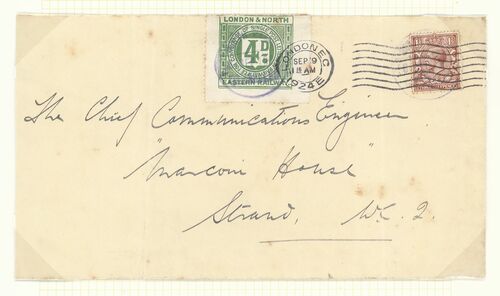 LONDON & NORTH
4D
EASTERN RAILWAY
LONDON. E.C.
SEP 9
AM
1924
The Chief Communications Engineer
"Marconi House"
Strand, W.C. 2.